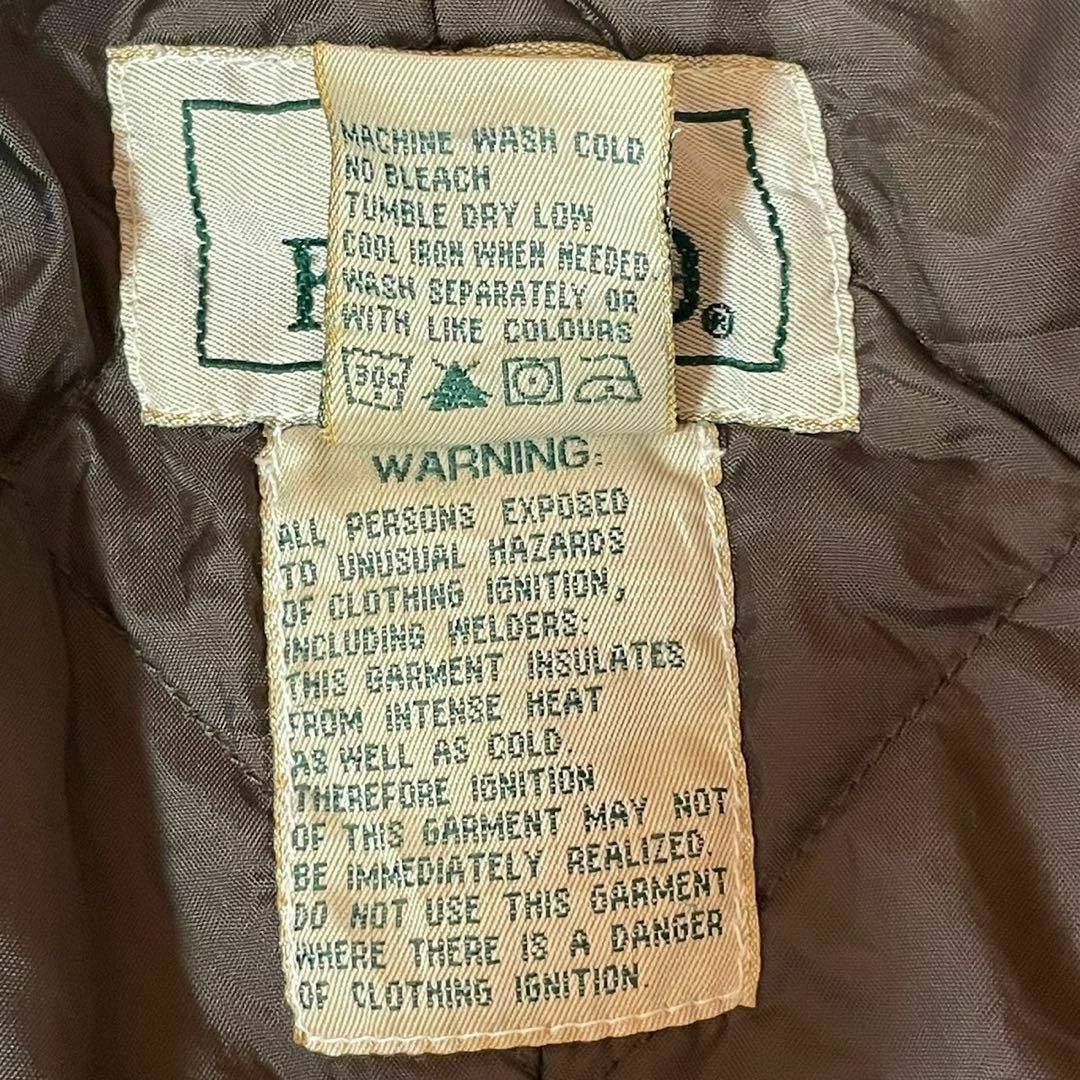 MACHINE WASH COLD
NO BLEACH
TUMBLE DRY LOW
COOL IRON WHEN NEEDED
WASH SEPARATELY OR
WITH LIKE COLOURS
30C
WARNING:
ALL PERSONS EXPOSED
TO UNUSUAL HAZARDS
OF CLOTHING IGNITION,
INCLUDING WELDERS:
THIS GARMENT INSULATES
FROM INTENSE HEAT
AS WELL AS COLD.
THEREFORE IGNITION
OF THIS GARMENT MAY NOT
BE IMMEDIATELY REALIZED.
DO NOT USE THIS GARMENT
WHERE THERE IS A DANGER
OF CLOTHING IGNITION.